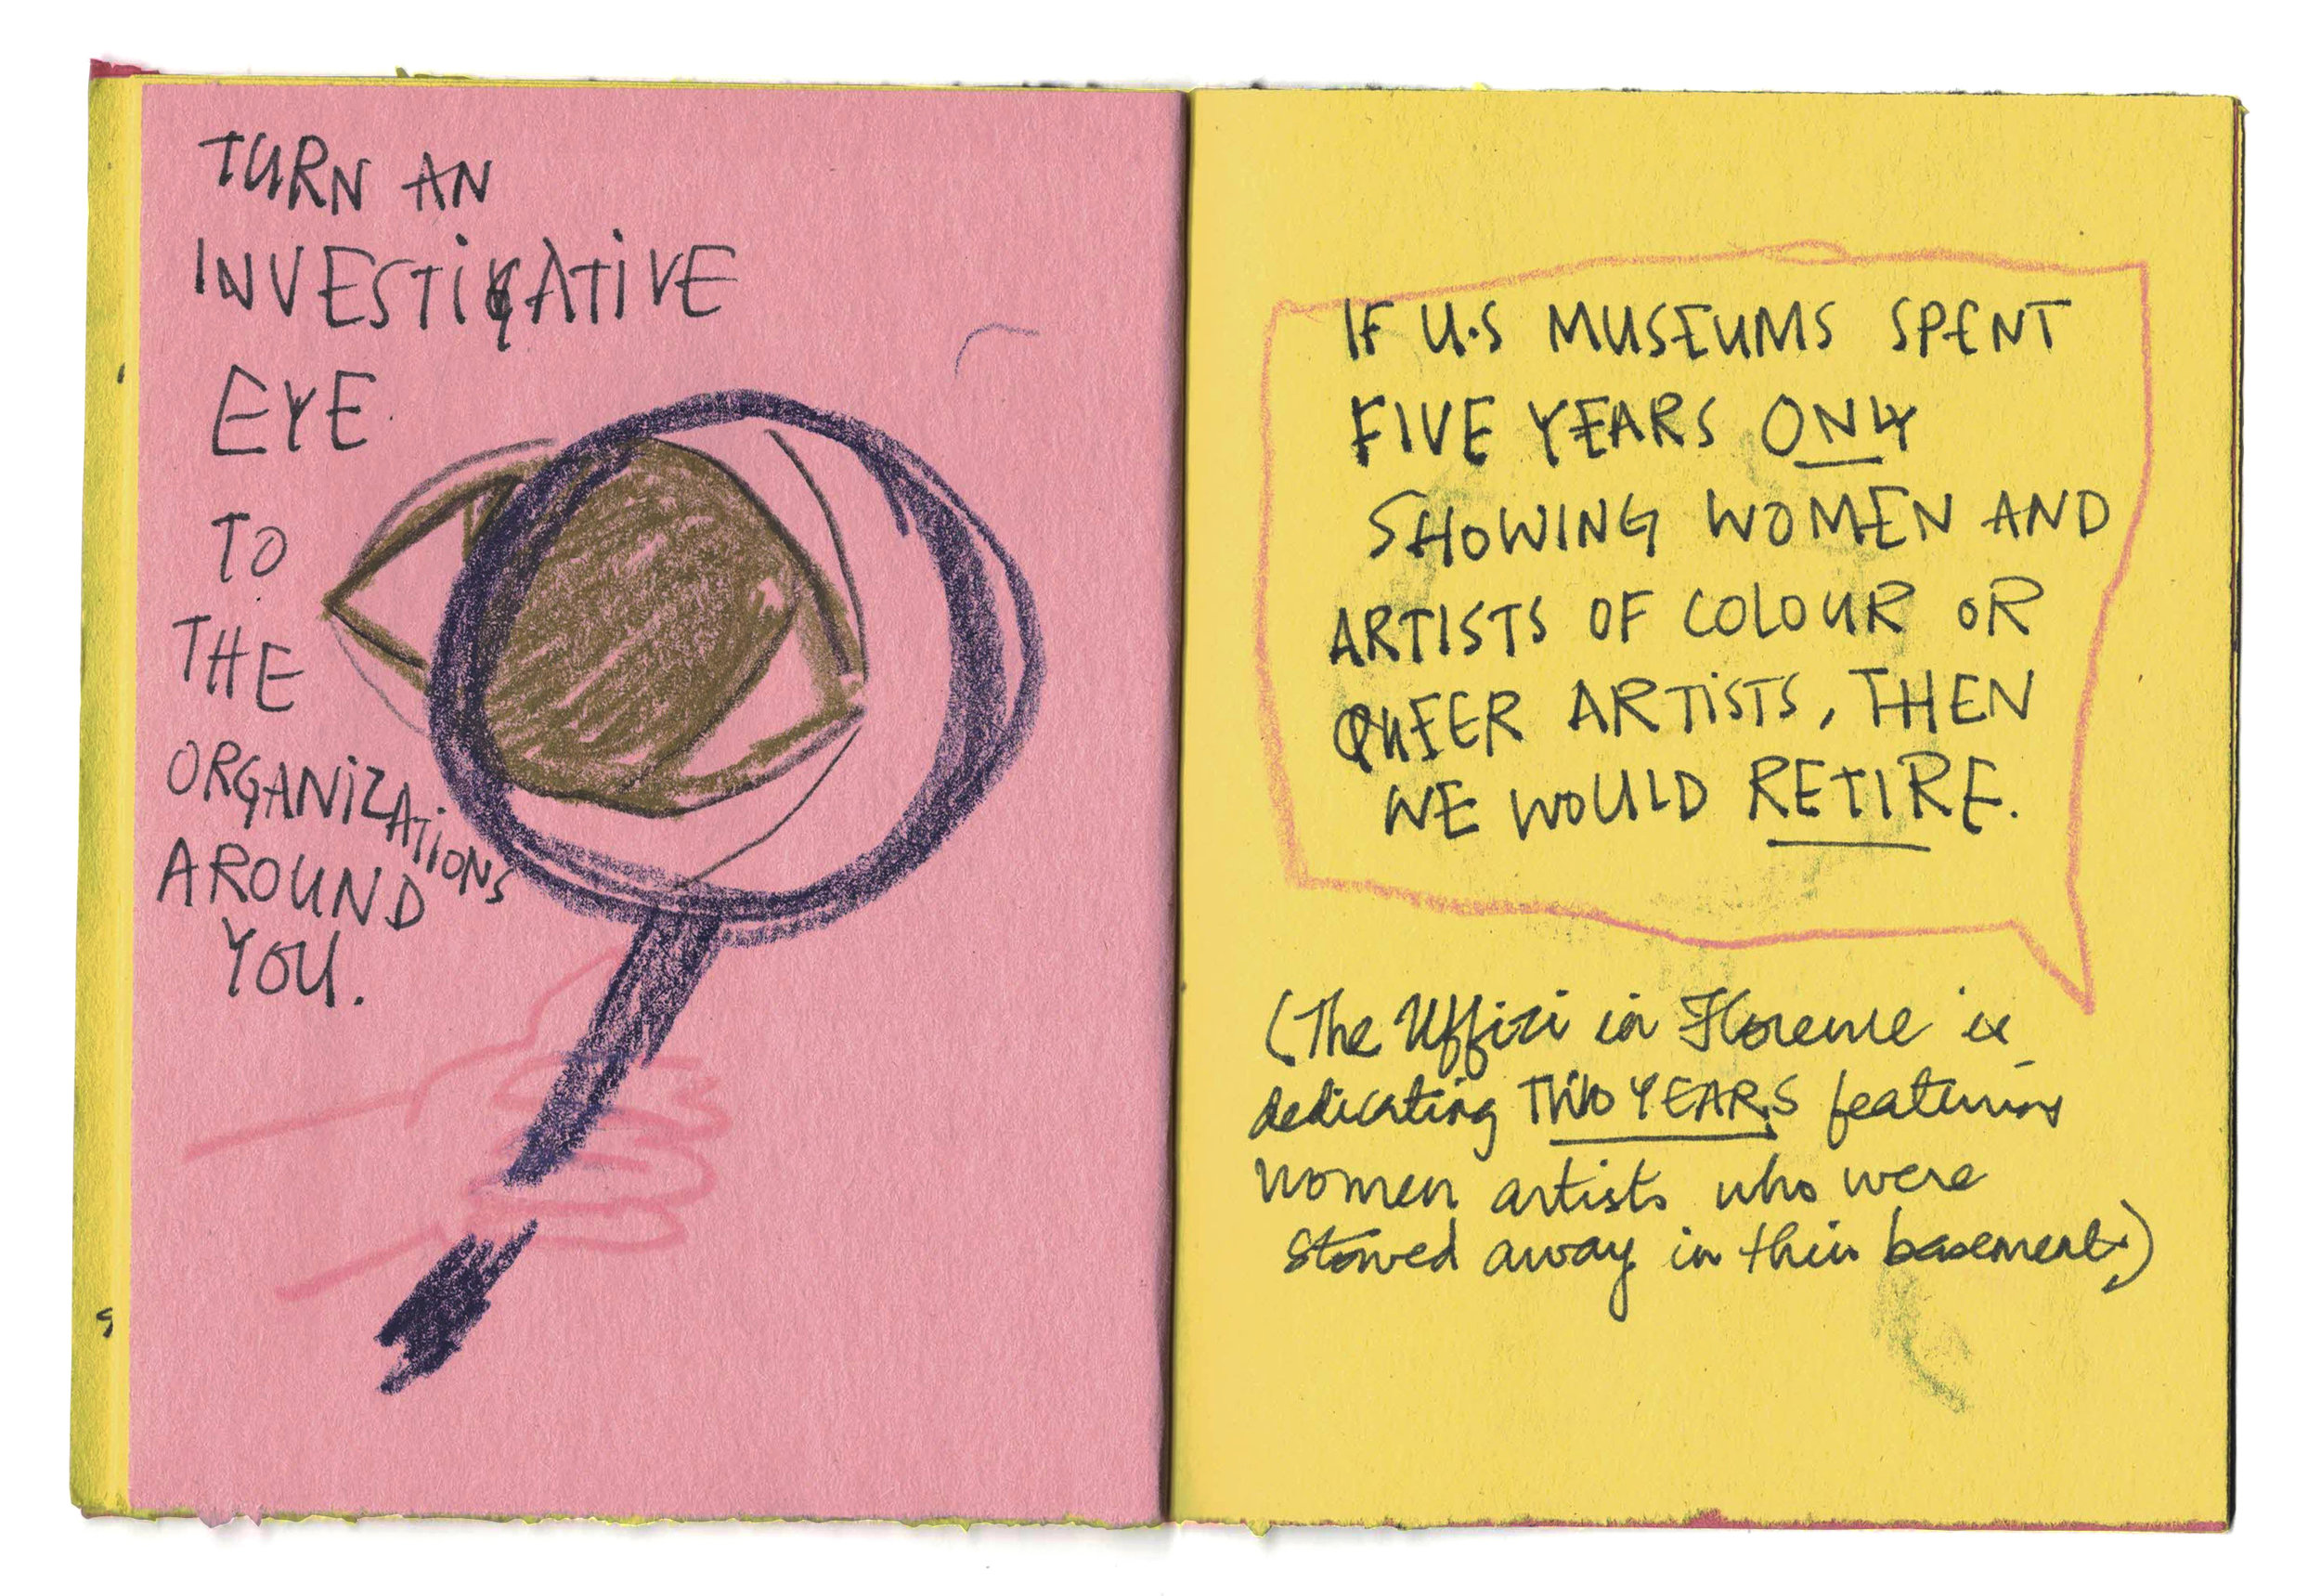 TURN AN
INVESTIGATIVE
EYE
TO
THE
ORGANIZATIONS
AROUND
YOU.
IF U.S MUSEUMS SPENT
FIVE YEARS ONLY
SHOWING WOMEN AND
ARTISTS OF COLOUR OR
QUEER ARTISTS, THEN
WE WOULD RETIRE.
(The Uffizi in Florence is
dedicating TWO YEARS featuring
women artists who were
stowed away in their basement.)